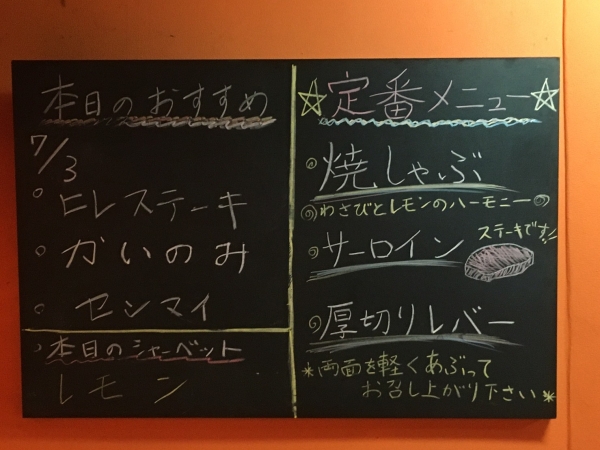 本日のおすすめ
7/3
ヒレステーキ
かいのみ
センマイ
本日のシャーベット
レモン
☆定番メニュー☆
焼しゃぶ
わさびとレモンのハーモニー
サーロイン
ステーキです!!
厚切りレバー
*両面を軽くあぶって
お召し上がり下さい*